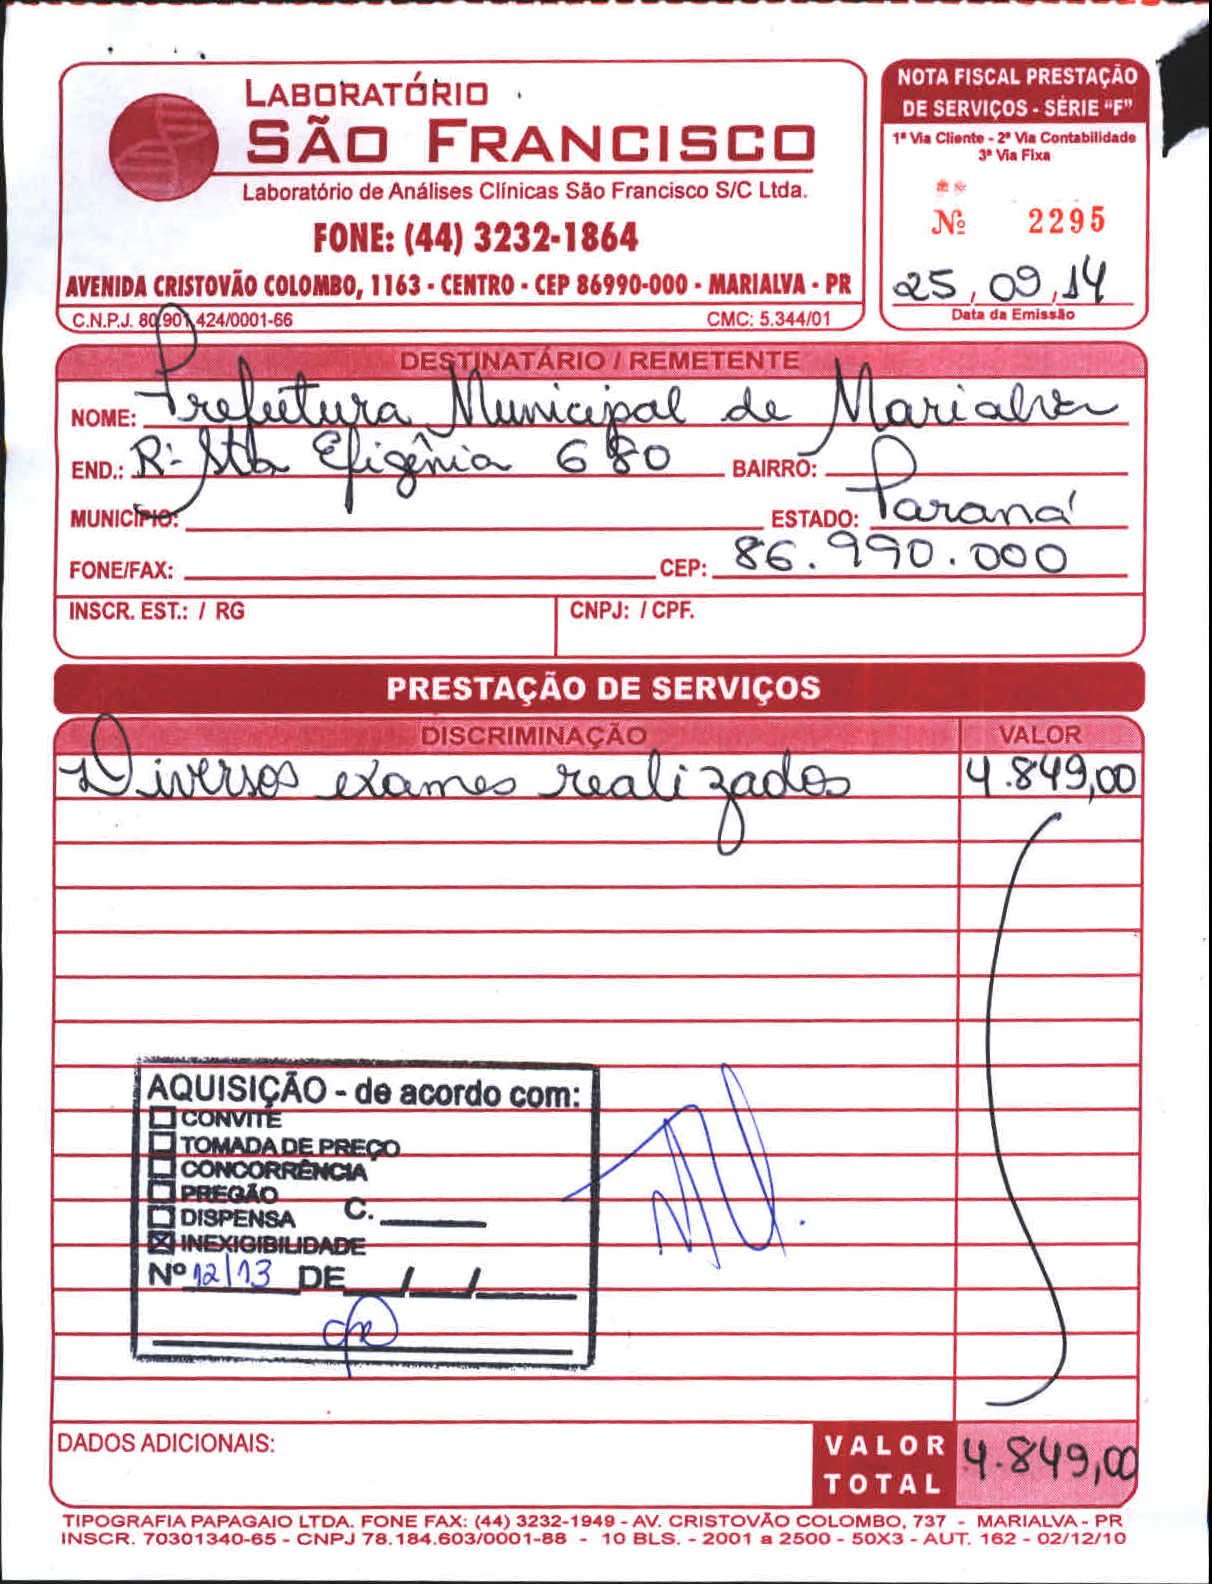 LABORATÓRIO
SÃO FRANCISCO
Laboratório de Análises Clínicas São Francisco S/C Ltda.
FONE: (44) 3232-1864
AVENIDA CRISTOVÃO COLOMBO, 1163 - CENTRO - CEP 86990-000 - MARIALVA - PR
C.N.P.J. 80.901.424/0001-66 CMC: 5.344/01
NOTA FISCAL PRESTAÇÃO
DE SERVIÇOS - SÉRIE "F"
1ª Via Cliente - 2ª Via Contabilidade
3ª Via Fixa
Nº 2295
25, 09, 14
Data da Emissão
DESTINATÁRIO / REMETENTE
NOME: Prefeitura Municipal de Marialva
END.: R: Sta Efigênia 680 BAIRRO:
MUNICÍPIO: ESTADO: Paraná
FONE/FAX: CEP: 86.990.000
INSCR. EST.: / RG CNPJ: / CPF.
PRESTAÇÃO DE SERVIÇOS
DISCRIMINAÇÃO VALOR
Diversos exames realizados 4.849,00
AQUISIÇÃO - de acordo com:
CONVITE
TOMADA DE PREÇO
CONCORRÊNCIA
PREGÃO
DISPENSA C.
INEXIGIBILIDADE
Nº 12/13 DE / /
DADOS ADICIONAIS:
VALOR TOTAL 4.849,00
TIPOGRAFIA PAPAGAIO LTDA. FONE FAX: (44) 3232-1949 - AV. CRISTOVÃO COLOMBO, 737 - MARIALVA - PR
INSCR. 70301340-65 - CNPJ 78.184.603/0001-88 - 10 BLS. - 2001 a 2500 - 50X3 - AUT. 162 - 02/12/10